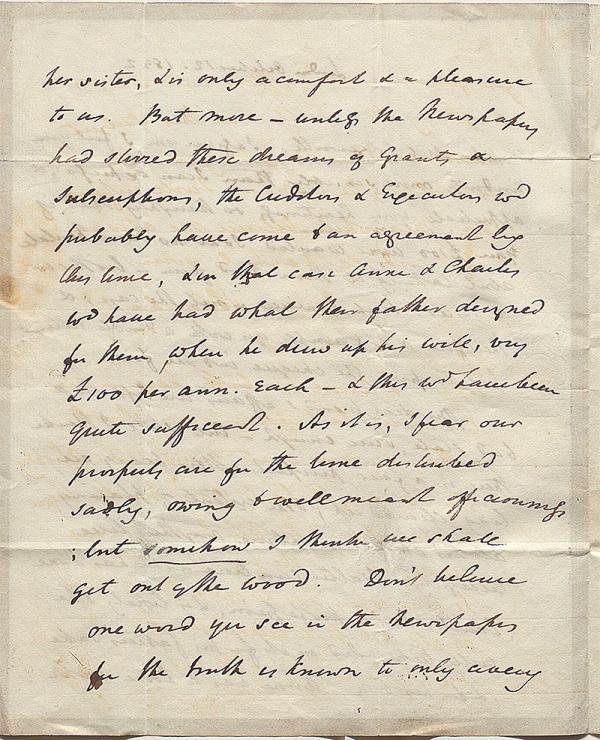 her sister, & is only a comfort & a pleasure
to us. But more – unless the Newspapers
had stirred these dreams of Grants &
Subscriptions, the Creditors & Executors wd
probably have come to an agreement by
this time, & in that case Anne & Charles
wd have had what their father designed
for them, when he drew up his will, viz
£100 per ann. each – & this wd have been
quite sufficient. As it is, I fear our
prospects are for the time disturbed
sadly, owing to well meant officiousness
; but somehow I think we shall
get out of the wood. Don't believe
one word you see in the Newspapers
for the truth is known to only a very